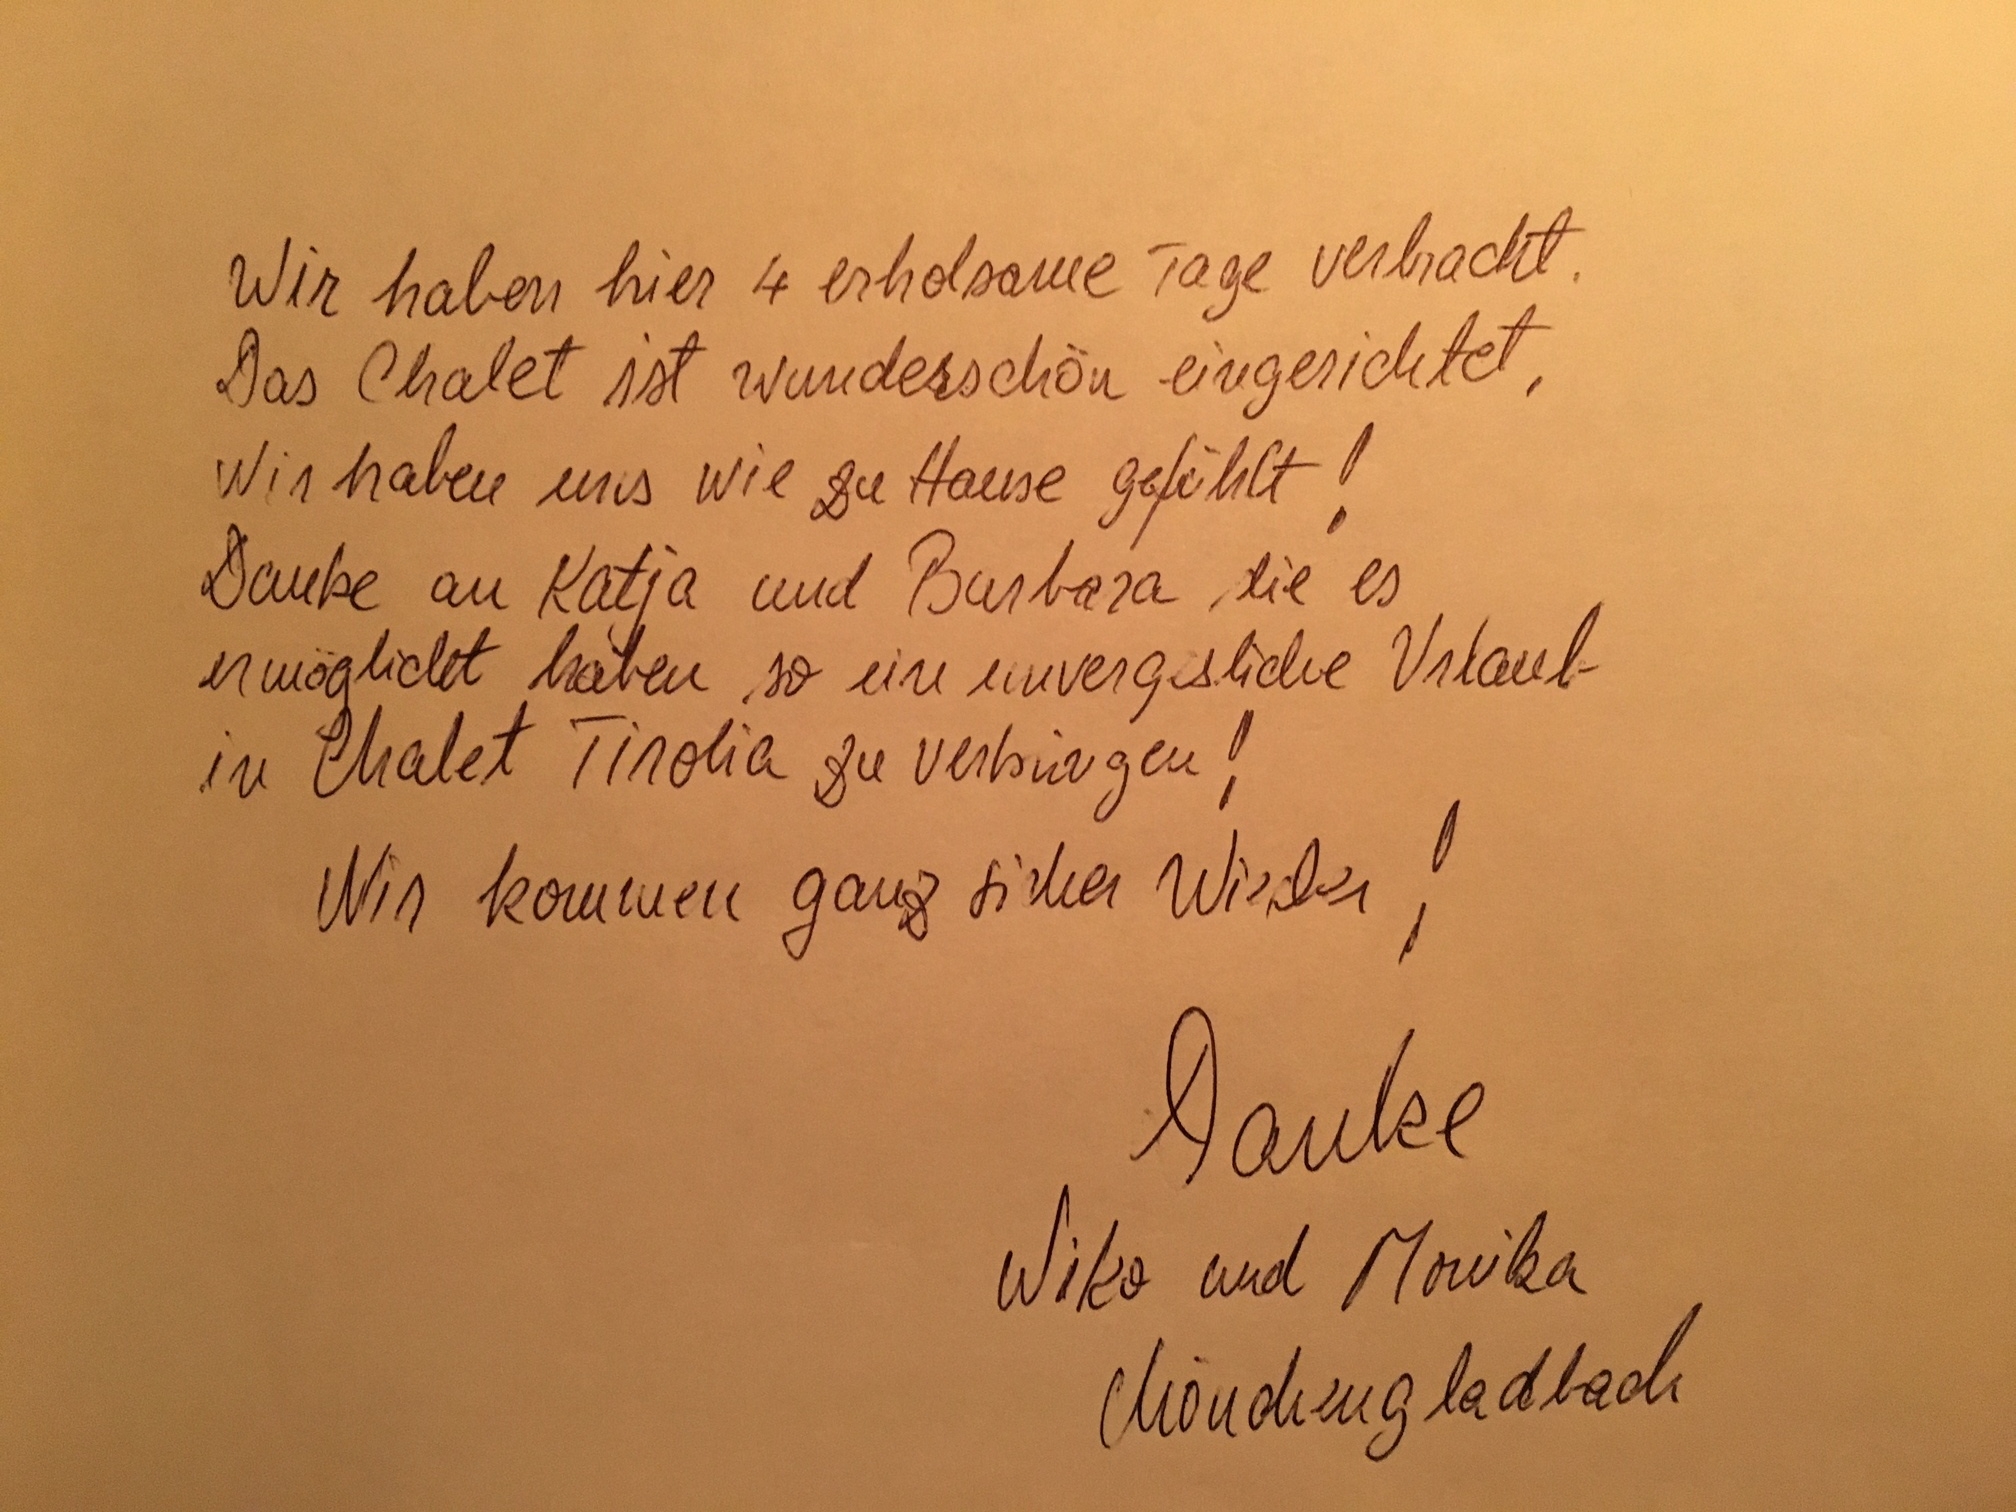 Wir haben hier 4 erholsame Tage verbracht.
Das Chalet ist wunderschön eingerichtet,
Wir haben uns wie zu Hause gefühlt!
Danke an Katja und Barbara die es
ermöglicht haben so ein unvergesliche Urlaub
in Chalet Tirolia zu verbringen!
Wir kommen ganz sicher Wieder!
Danke
Wiko und Monika
Mönchengladbach